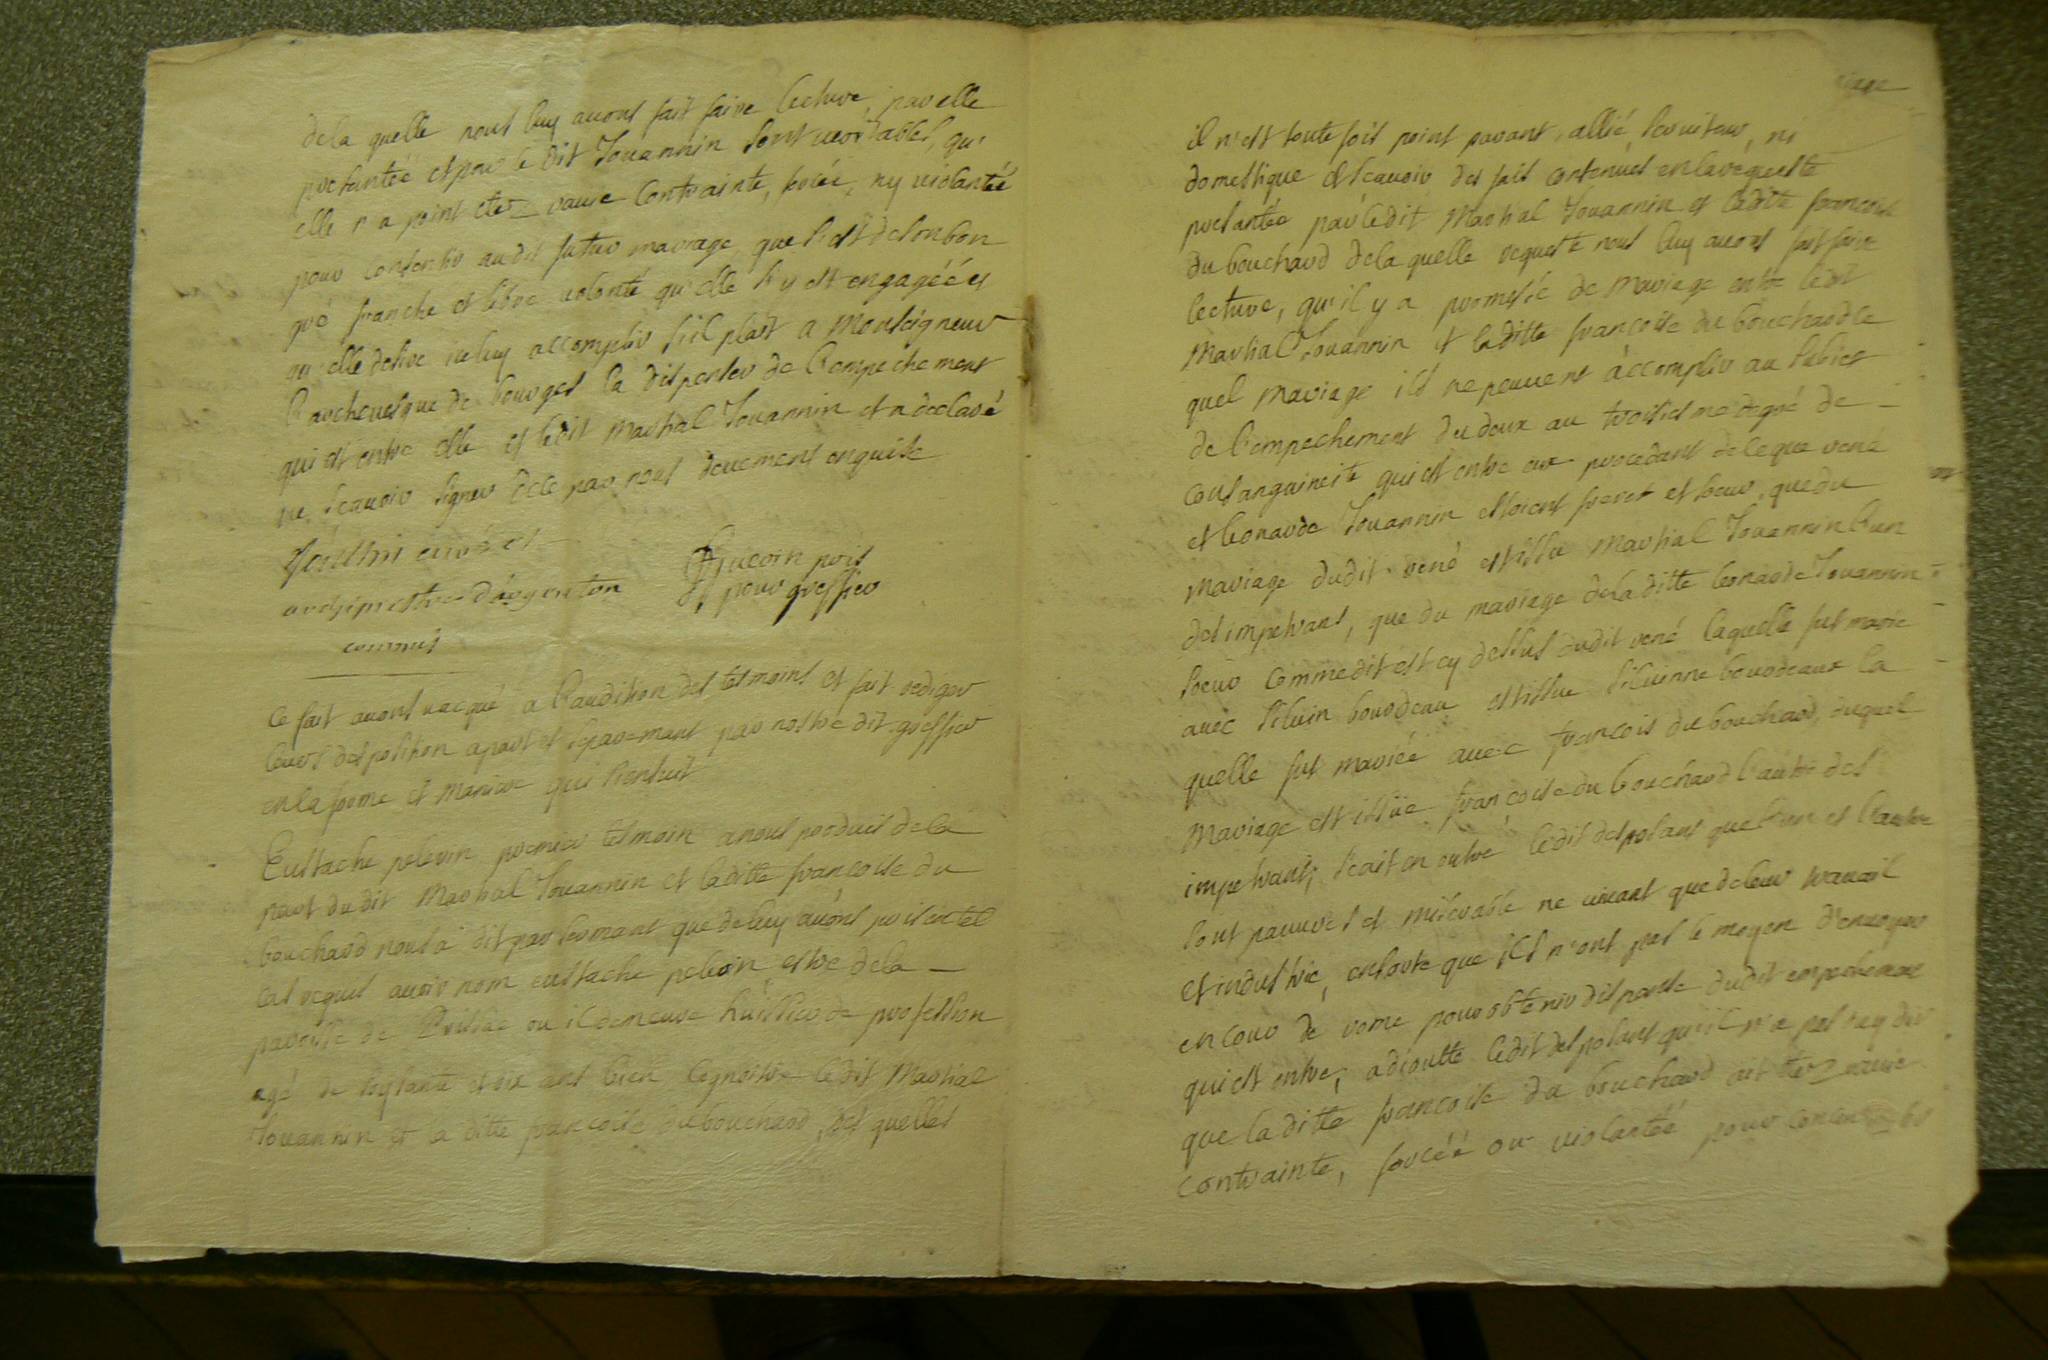 dela quelle nous luy avons fait faire lecture, par elle
presantée et par le dit Jouannin sont veritables, qu'
elle n'a point ete ravie contrainte, forcée, ny violantée
pour consentir audit futur mariage, que c'est de son bon
gré franche et libre volonté qu'elle s'y est engagéé et
qu'elle desire iceluy accomplir s'il plaist a Monseigneur
l'archevesque de bourges la dispenser de l'empechement
qui est entre elle et ledit Martial Jouannin et a declaré
ne scavoir signer de ce par nous deuement enquise
curé et
archiprestre d'argenton
commis
pris
pour greffier
Ce fait avons vacqué a l'audition des tesmoins et fait rediger
leurs desposition apart et separement par nostre dit greffier
en la forme et maniere qui s'ensuit
Eustache pelerin premier tesmoin a nous produit de la
part du dit Martial Jouannin et laditte francoise du
bouchaud nous a dit par serment que de luy avons pris en tel
cas requis avoir nom eustache pelerin, estre dela
paroisse de ou il demeure huissier de profession
agé de soixante et dix ans bien cognoitre ledit Martial
Jouannin et la ditte francoise du bouchaud, des quelles
il n'est toute fois point parant, allié, serviteur, ni
domestique et scavoir des fais contenues en la requeste
presantée par ledit Martial Jouannin et ladite francoise
du bouchaud dela quelle requeste nous luy avons fait faire
lecture, qu'il y a promesse de mariage entre ledit
Martial Jouannin et laditte françoise du bouchaud le
quel mariage ils ne peuvent accomplir au subiet
de l'empechement du deux au troisiesme degré de
consanguinité qui est entre eux procedant de ce que rené
et leonarde Jouannin estoient freres et soeur, que du
mariage dudit rené est issu Martial Jouannin l'un
des impetrans, que du mariage dela ditte leonarde Jouannin
soeur comme dit est cy dessus dudit rené laquelle fut mariée
avec silvin bourdeau est issue silvienne bourdeaux la
quelle fut mariéé avec francois du bouchaud, duquel
mariage est issüe françoise du bouchaud l'autre des
impetrants, scait en outre ledit desposant que l'un et l'autre
sont pauvres et miserable ne vivant que de leur travail
et industrie, en sorte que ils n'ont pas le moyen d'envoyer
en cour de rome pour obtenir dispense dudit empechement
qui est entre, adjoutte ledit desposant qu'il n'a pas ouy dire
que la ditte francoise du bouchaud ait ete ravie
contrainte, forcéé ou violantéé pour consentir